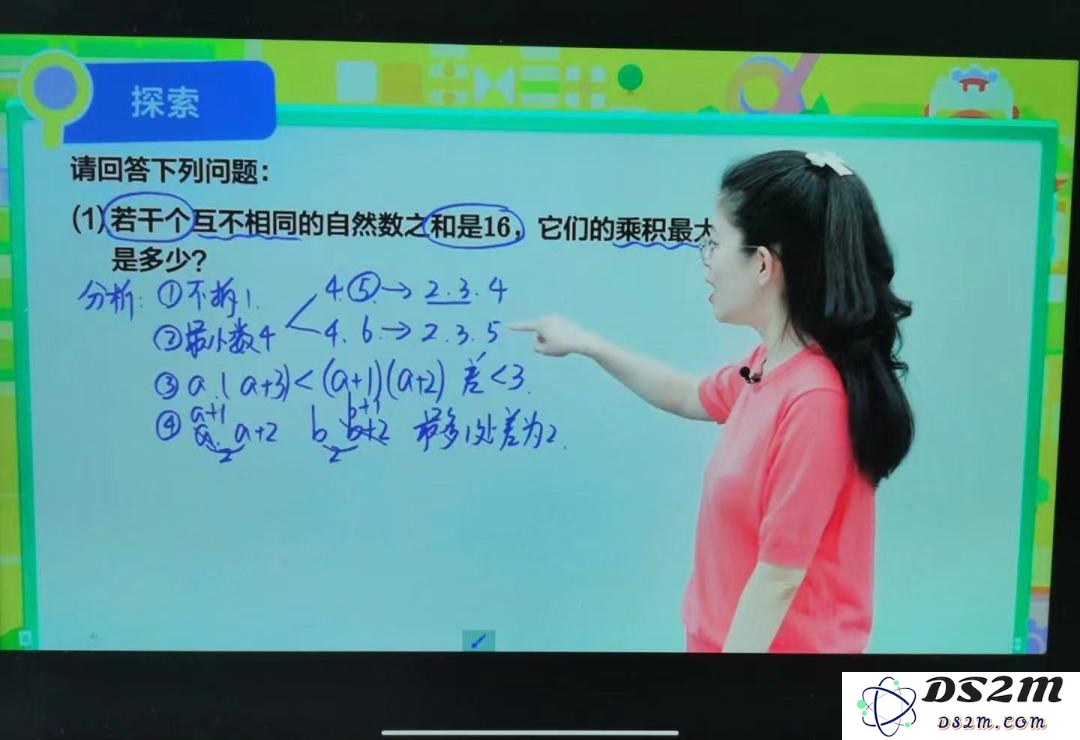 探索
请回答下列问题：
(1)若干个互不相同的自然数之和是16，它们的乘积最大
是多少？
分析：①不拆1.
4.⑤→2.3.4
②最小数4
4.6→2.3.5
③a.(a+3)<(a+1)(a+2) 差<3.
④a+1 b+1
a a+2 b b+2 最多1处差为2.
2 2
DS2M
DS2M.COM